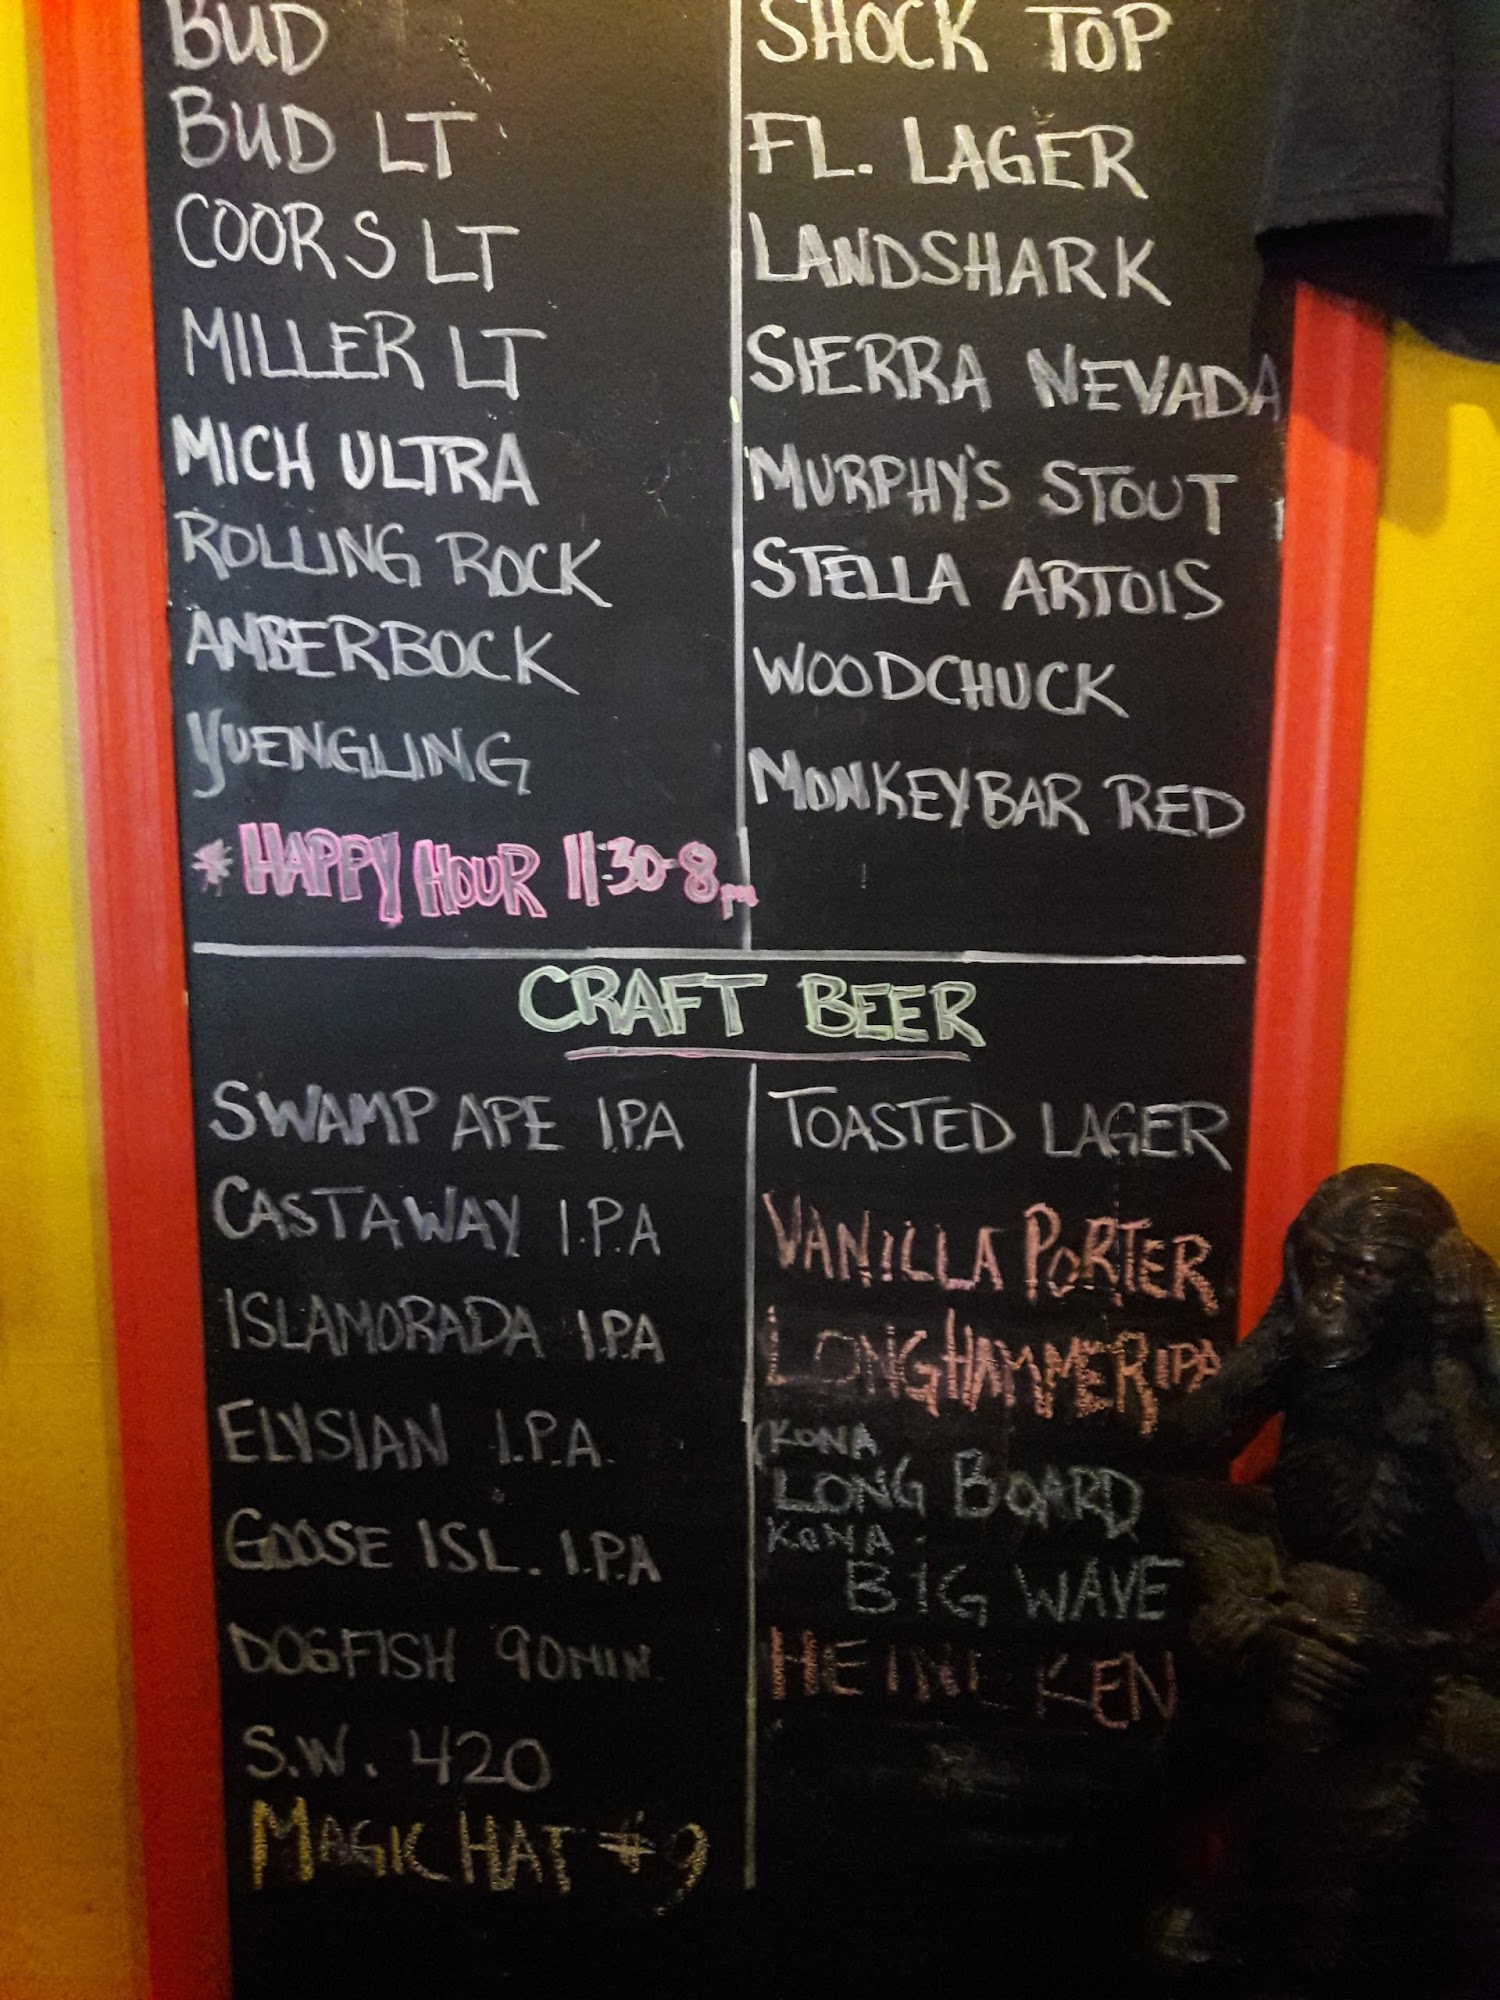 BUD
BUD LT
COORS LT
MILLER LT
MICH ULTRA
ROLLING ROCK
AMBERBOCK
YUENGLING
* HAPPY HOUR 11:30-8pm
SHOCK TOP
FL. LAGER
LANDSHARK
SIERRA NEVADA
MURPHY'S STOUT
STELLA ARTOIS
WOODCHUCK
MONKEYBAR RED
CRAFT BEER
SWAMP APE I.P.A
CASTAWAY I.P.A
ISLAMORADA I.P.A
ELYSIAN I.P.A.
GOOSE ISL. I.P.A
DOGFISH 90MIN.
S.W. 420
MAGIC HAT #9
TOASTED LAGER
VANILLA PORTER
LONGHAMMER IPA
KONA
LONG BOARD
KONA
BIG WAVE
HEINEKEN